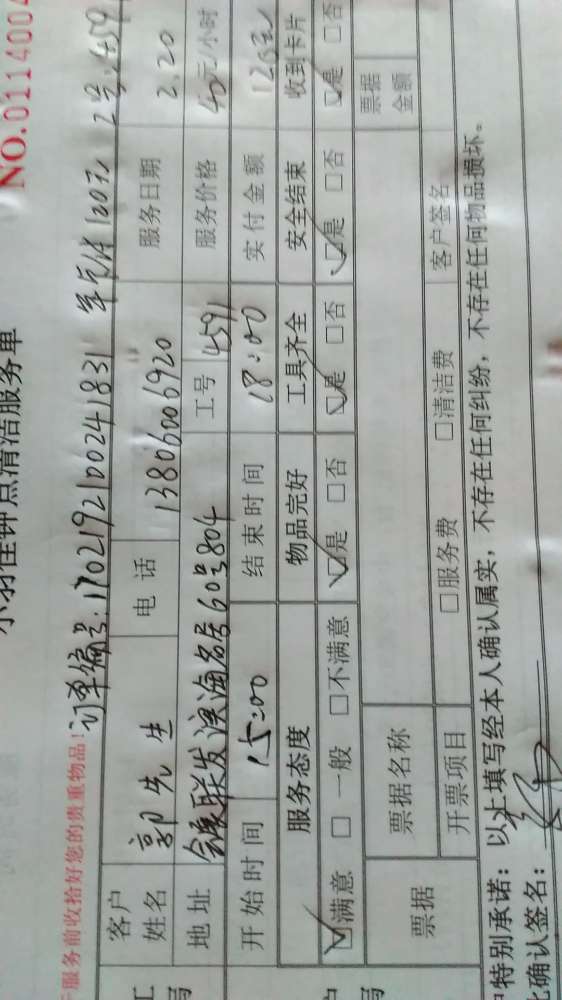 NO.0114004
钟点清洁服务单
服务前收拾好您的贵重物品!
订单编号:1702192100241831 120元 2号:4459
客户姓名 郭先生 电话 13806006920 服务日期 2.20
地址 联发滨海名居60号804 工号 4591 服务价格 40元/小时
开始时间 15:00 结束时间 18:00 实付金额 120元
服务态度 物品完好 工具齐全 安全结束 收到卡片
☑满意 □一般 □不满意 ☑是 □否 ☑是 □否 ☑是 □否 ☑是 □否
票据 票据名称 票据金额
开票项目 □服务费 □清洁费 客户签名
特别承诺:以上填写经本人确认属实,不存在任何纠纷,不存在任何物品损坏。
确认签名: